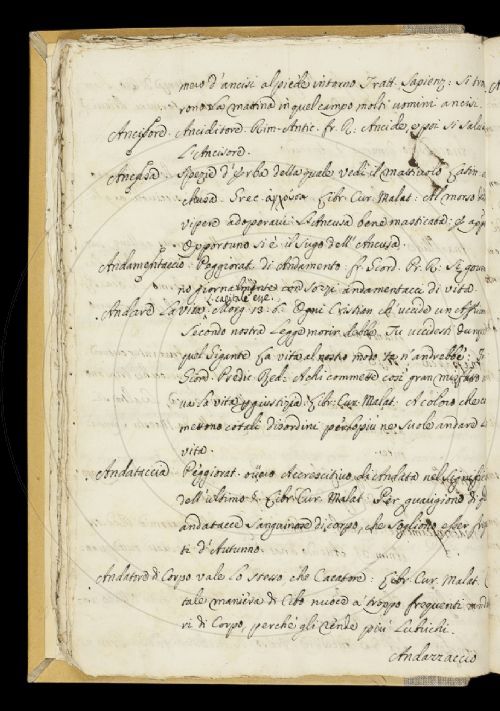 mero d'ancisi al piede intorno Tratt. Sapienz: Si tro
rono la mattina in quel campo molti uomini ancisi.
Ancisore. Anciditore. Rim. Antic. fr. R: Ancide, e poi si salva
L'Ancisore.
Ancusa. Spezie d'Erba della quale vedi il mattiolo
Ancusa. Grec. Libr. Cur. Malat: Al morso
vipere adoperavi L'Ancusa bene masticata:
Opportuno si è il Sugo dell'Ancusa
Andamentaccio. Peggiorat. di Andamento fr. Giord. Pr. R: Si
no giornalmente con sozzi andamentacci di vita
L. capitale ene.
Andare La vita. Morg. 18. 6. Ogni Cristian ch'uccide un
Secondo nostra Legge morir debbe. Tu uccidesti
quel Gigante La vita al nostro modo te n'andrebbe: Fr
Giord. Predic. Red: A chi commette così gran
va la vita Libr. Cur. Malat. A coloro che
mettono cotali disordini perlopiù ne suole andare La
vita.
Andataccia Peggiorat. ovvero Accrescitivo di Andata nel Significa
dell'ultimo §. Libr. Cur. Malat: Per guarigione di
andatacce Sanguinose di corpo, che sogliono esser
ti d'Autunno.
Andatore di Corpo vale Lo stesso che Cacatore: Libr. Cur. Malat.
tale maniera di Cibo nuoce a troppo frequenti andato
ri di Corpo, perché gli rende più Lubrichi.
Andazzaccio